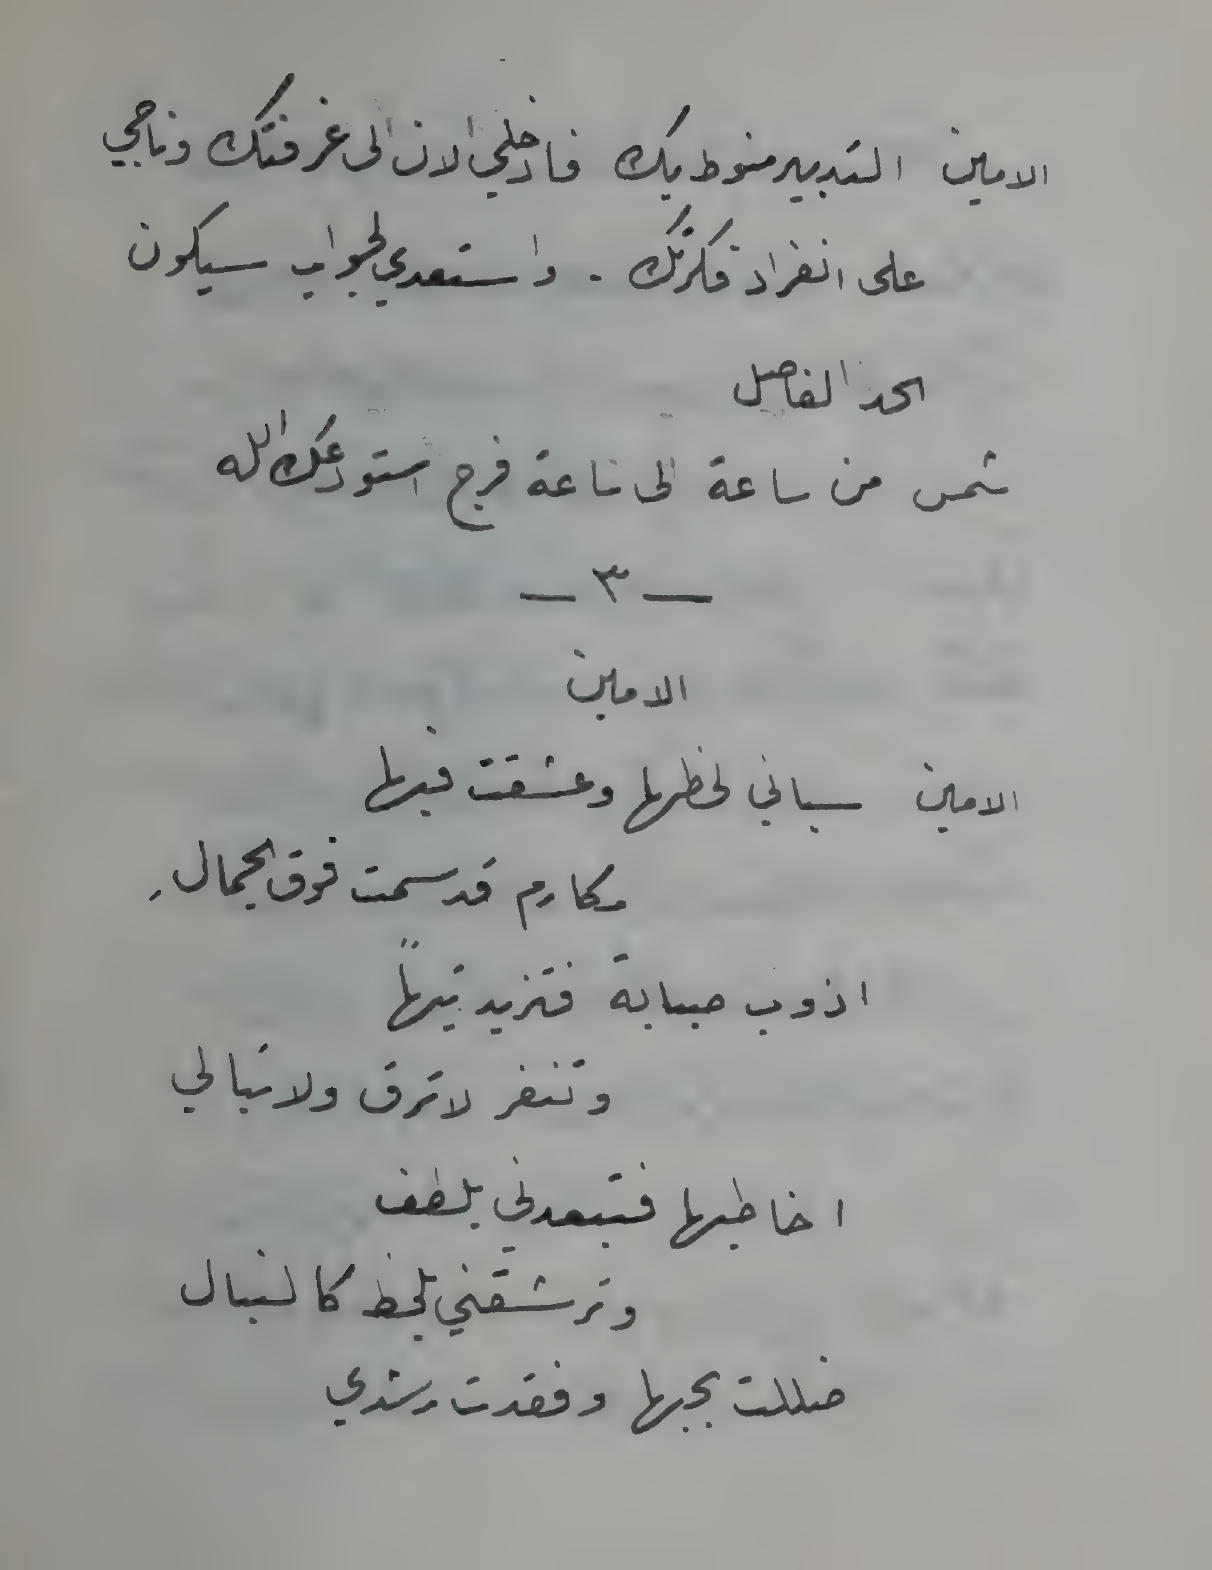 الامين التدبير منوط بك فادخلي الان الى غرفتك وناجي
على انفراد فكرتك . واستعدي لجواب سيكون
الحد الفاصل
شمس من ساعة الى ساعة فرج استودعك الله
— ٣ —
الامين
الامين سباني لحظها وعشقت فيها
مكارم قد سمت فوق الجمال
اذوب صبابة فتزيد تيهاً
وتنفر لا ترق ولا تبالي
اخاطبها فتبعدني بلطف
وترشقني بلحظ كالنبال
ضللت بحبها وفقدت رشدي